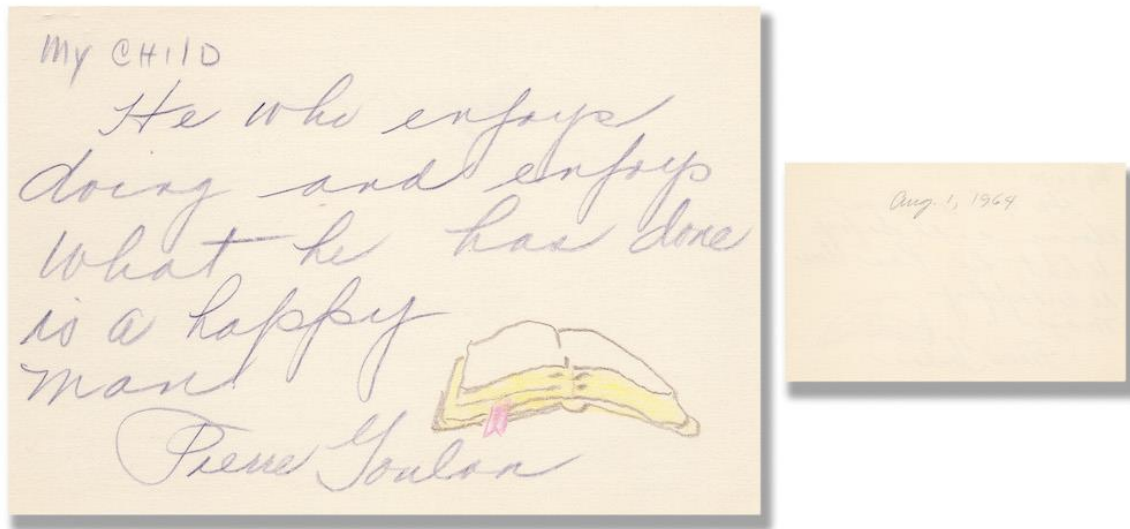 My CHILD
He who enjoys
doing and enjoys
what he has done
is a happy
man
Pierre Goulon
Aug. 1, 1964